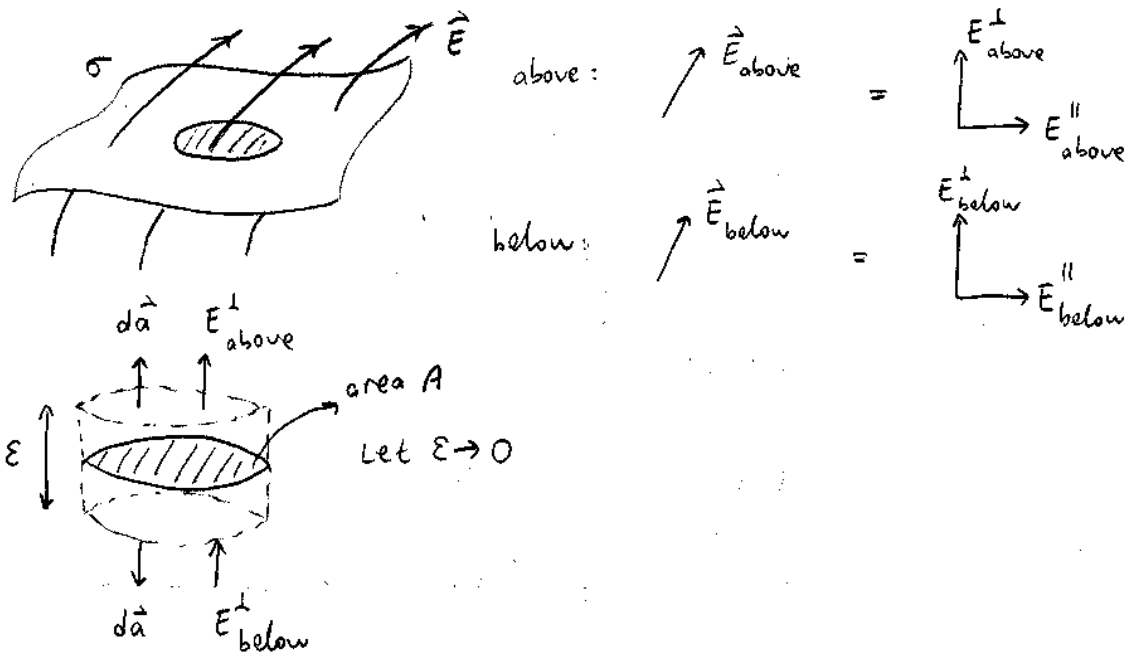 σ
E⃗
above: E⃗above = E⊥above
E∥above
below: E⃗below = E⊥below
E∥below
da⃗ E⊥above
area A
ε Let ε → 0
da⃗ E⊥below